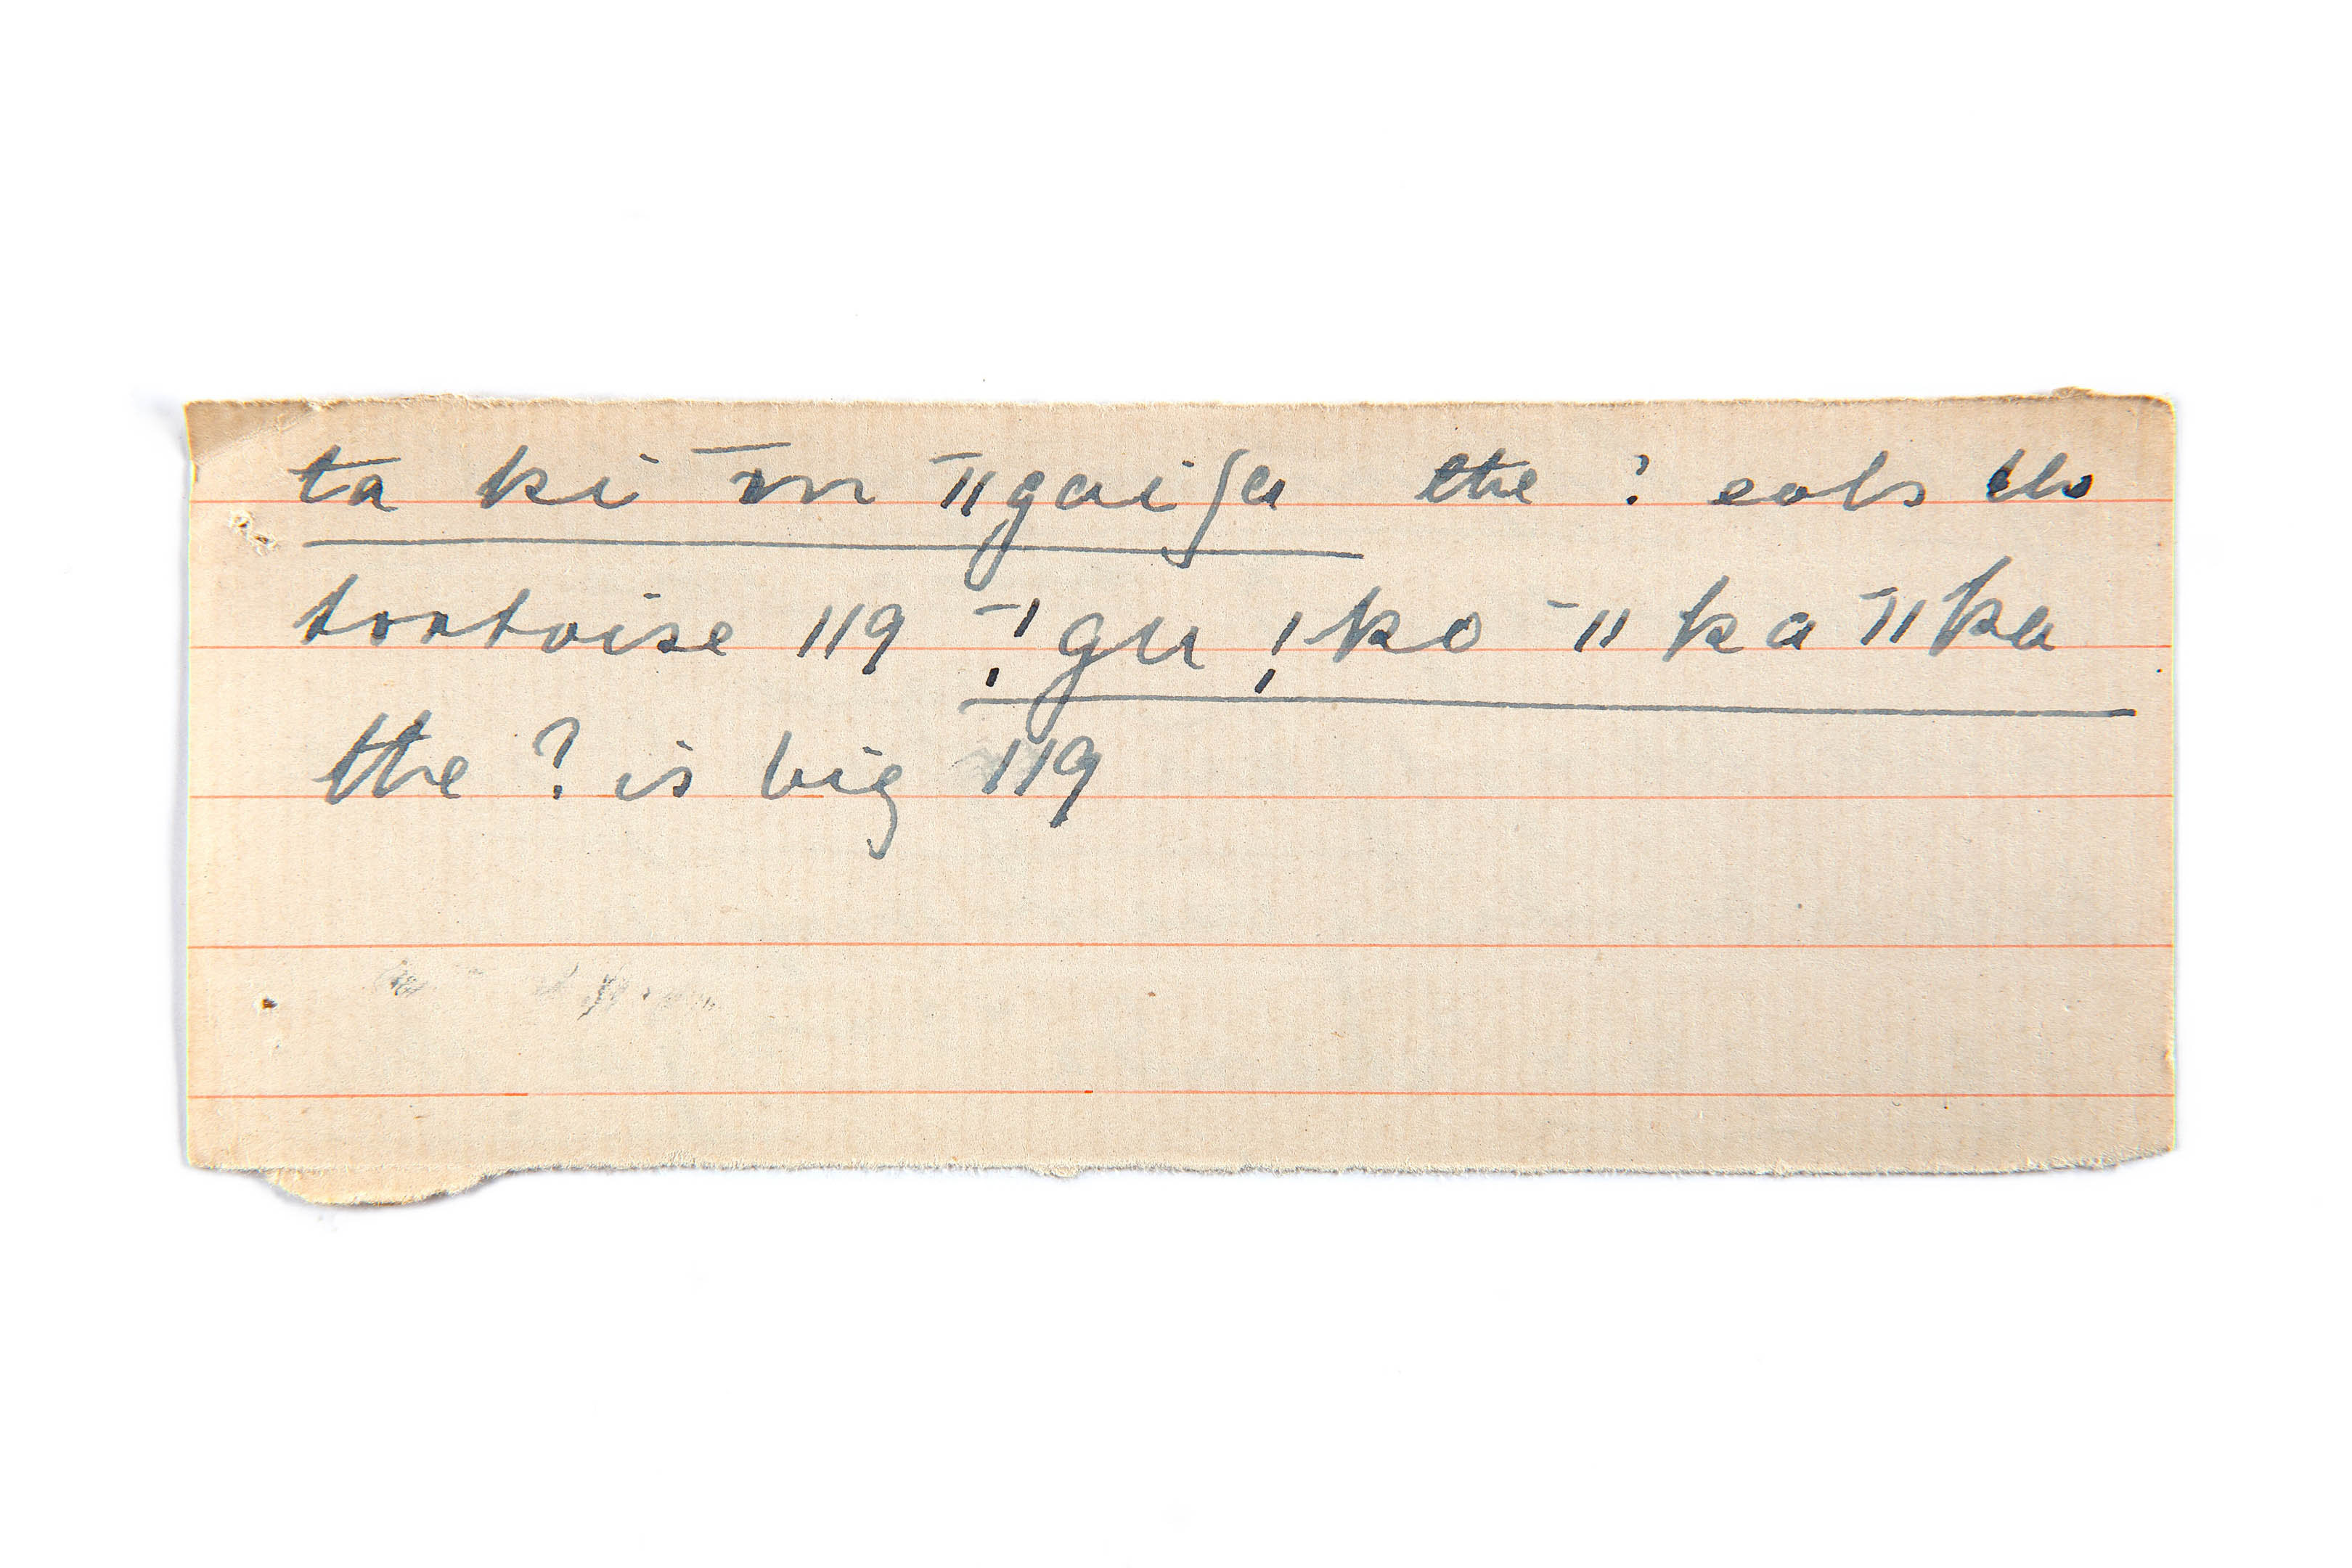 ta ki ¯m ¯ǁgaiʃa the ? eats the
tortoise 119 ¯ǃgu ǃko ¯ǁka ¯ǁka
the ? is big 119